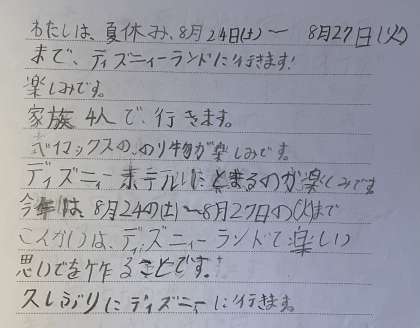 わたしは、夏休み、8月24日(土)〜 8月27日(火)
まで、ディズニーランドに行きます!
楽しみです。
家族4人で、行きます。
ベイマックスの、のり物が楽しみです。
ディズニーホテルにとまるのが楽しみです
今年は、8月24の(土)〜8月27日の(火)まで
こんかいは、ディズニーランドで楽しい
思いでを作ることです。
久しぶりにディズニーに行きます。